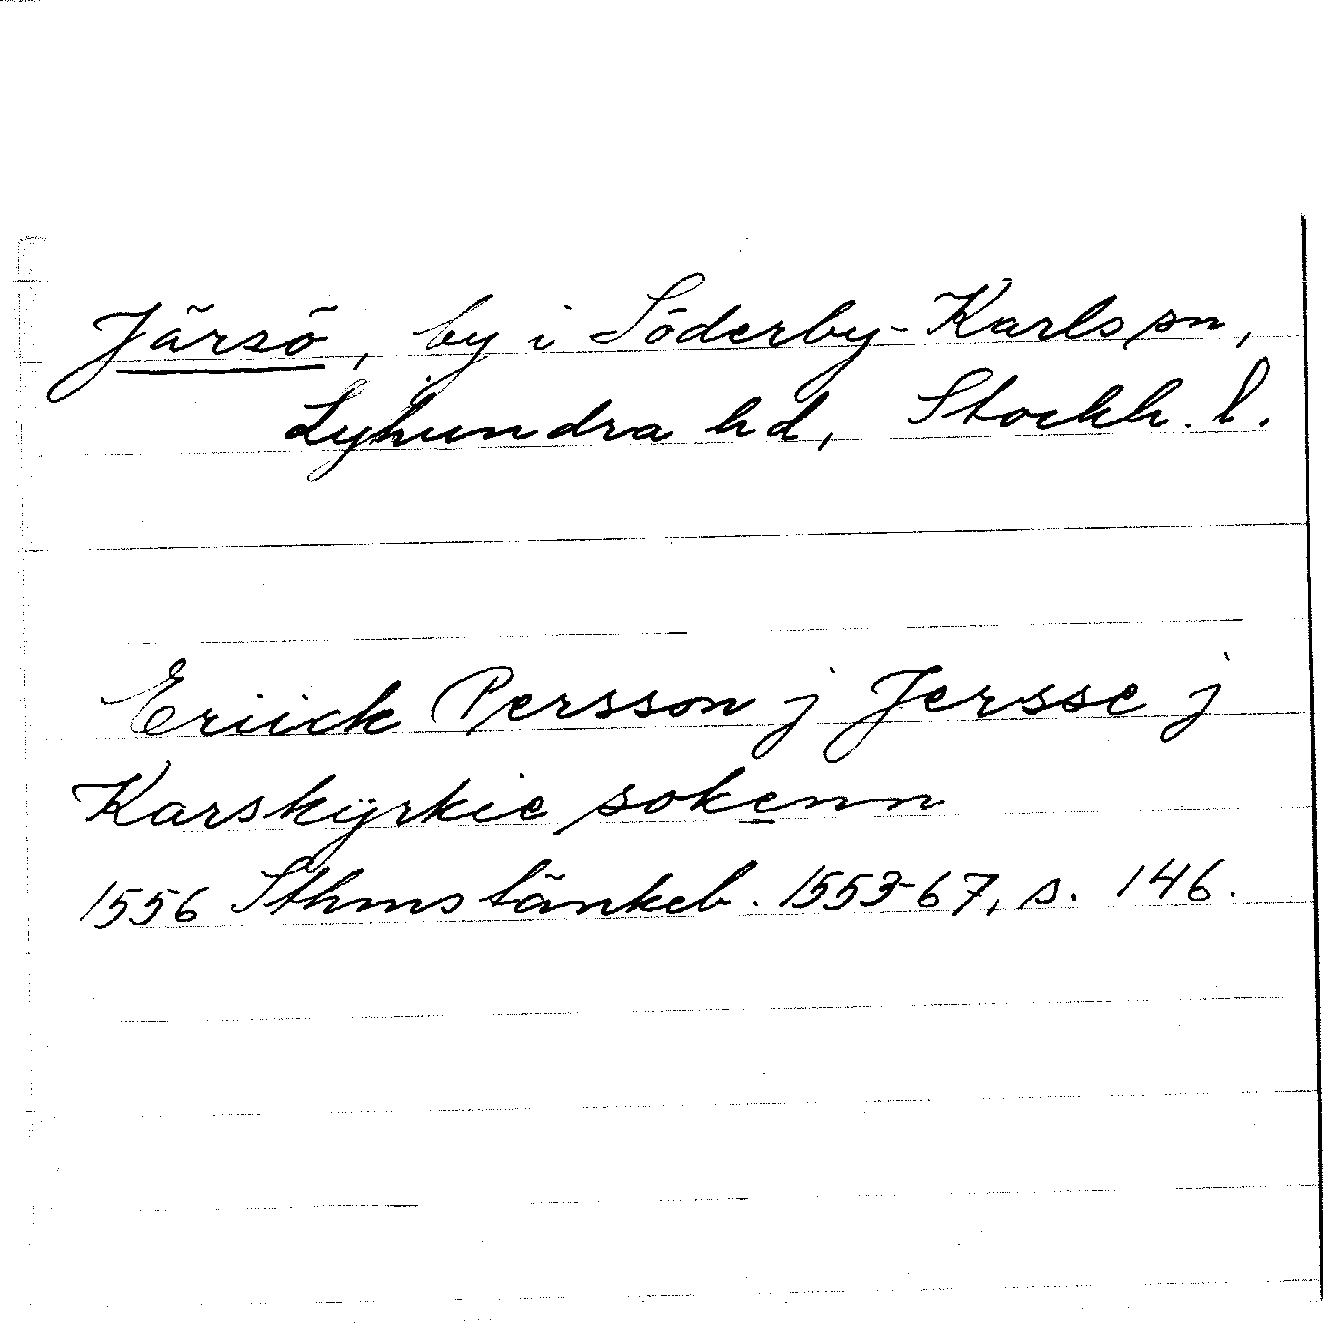 Järsö, by i Söderby-Karls sn,
Lyhundra hd, Stockh. l.
Eriick Persson j Jersse j
Karskÿrkie sokenn
1556 Sthms tänkeb. 1553-67, s. 146.